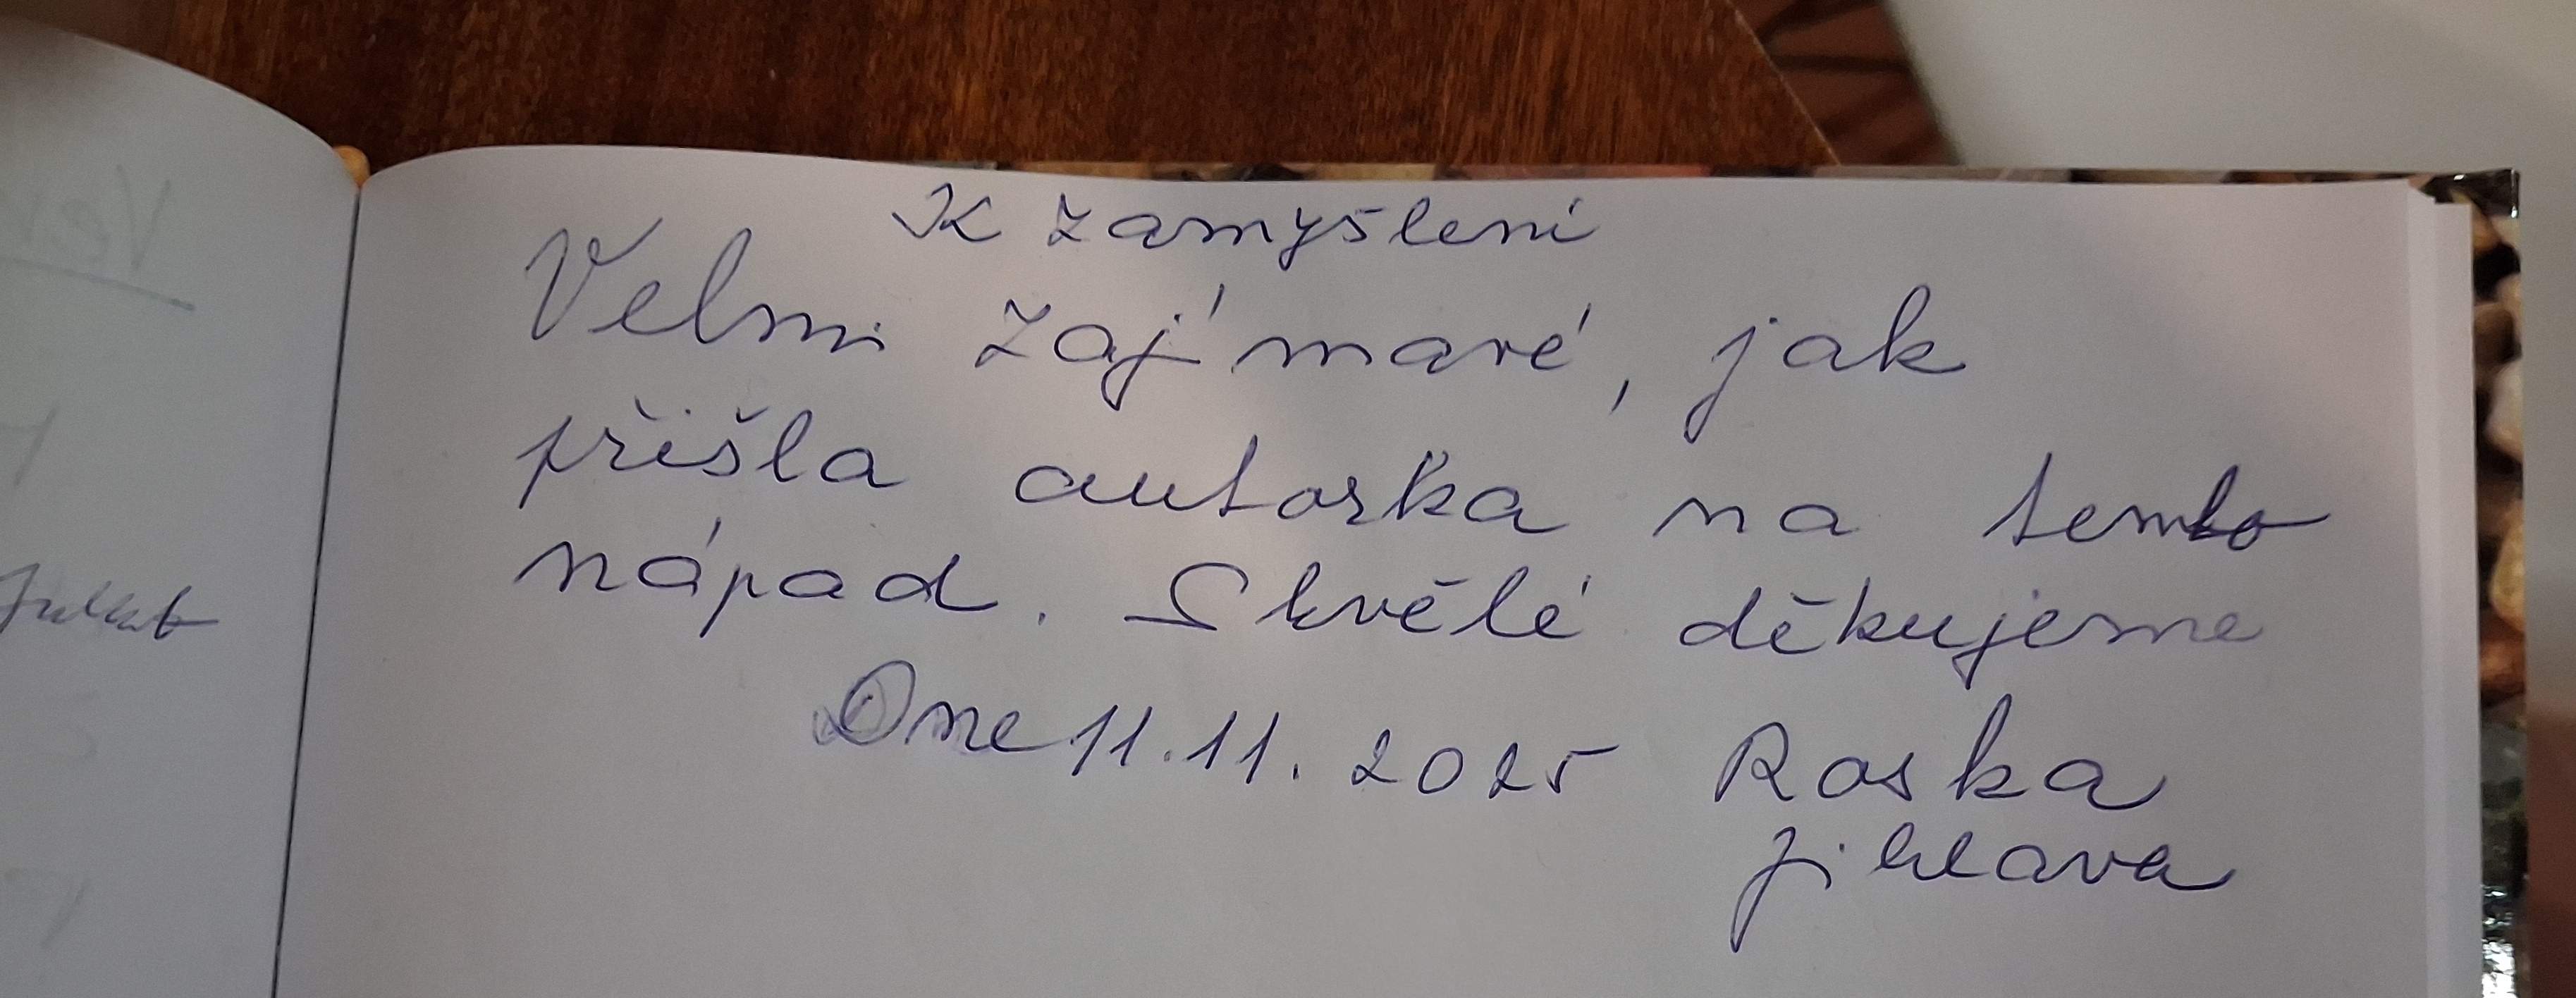 K zamyšlení
Velmi zajímavé, jak
přišla autorka na tento
nápad. Skvělé děkujeme
Dne 11.11. 2025 Roska
Jihlava